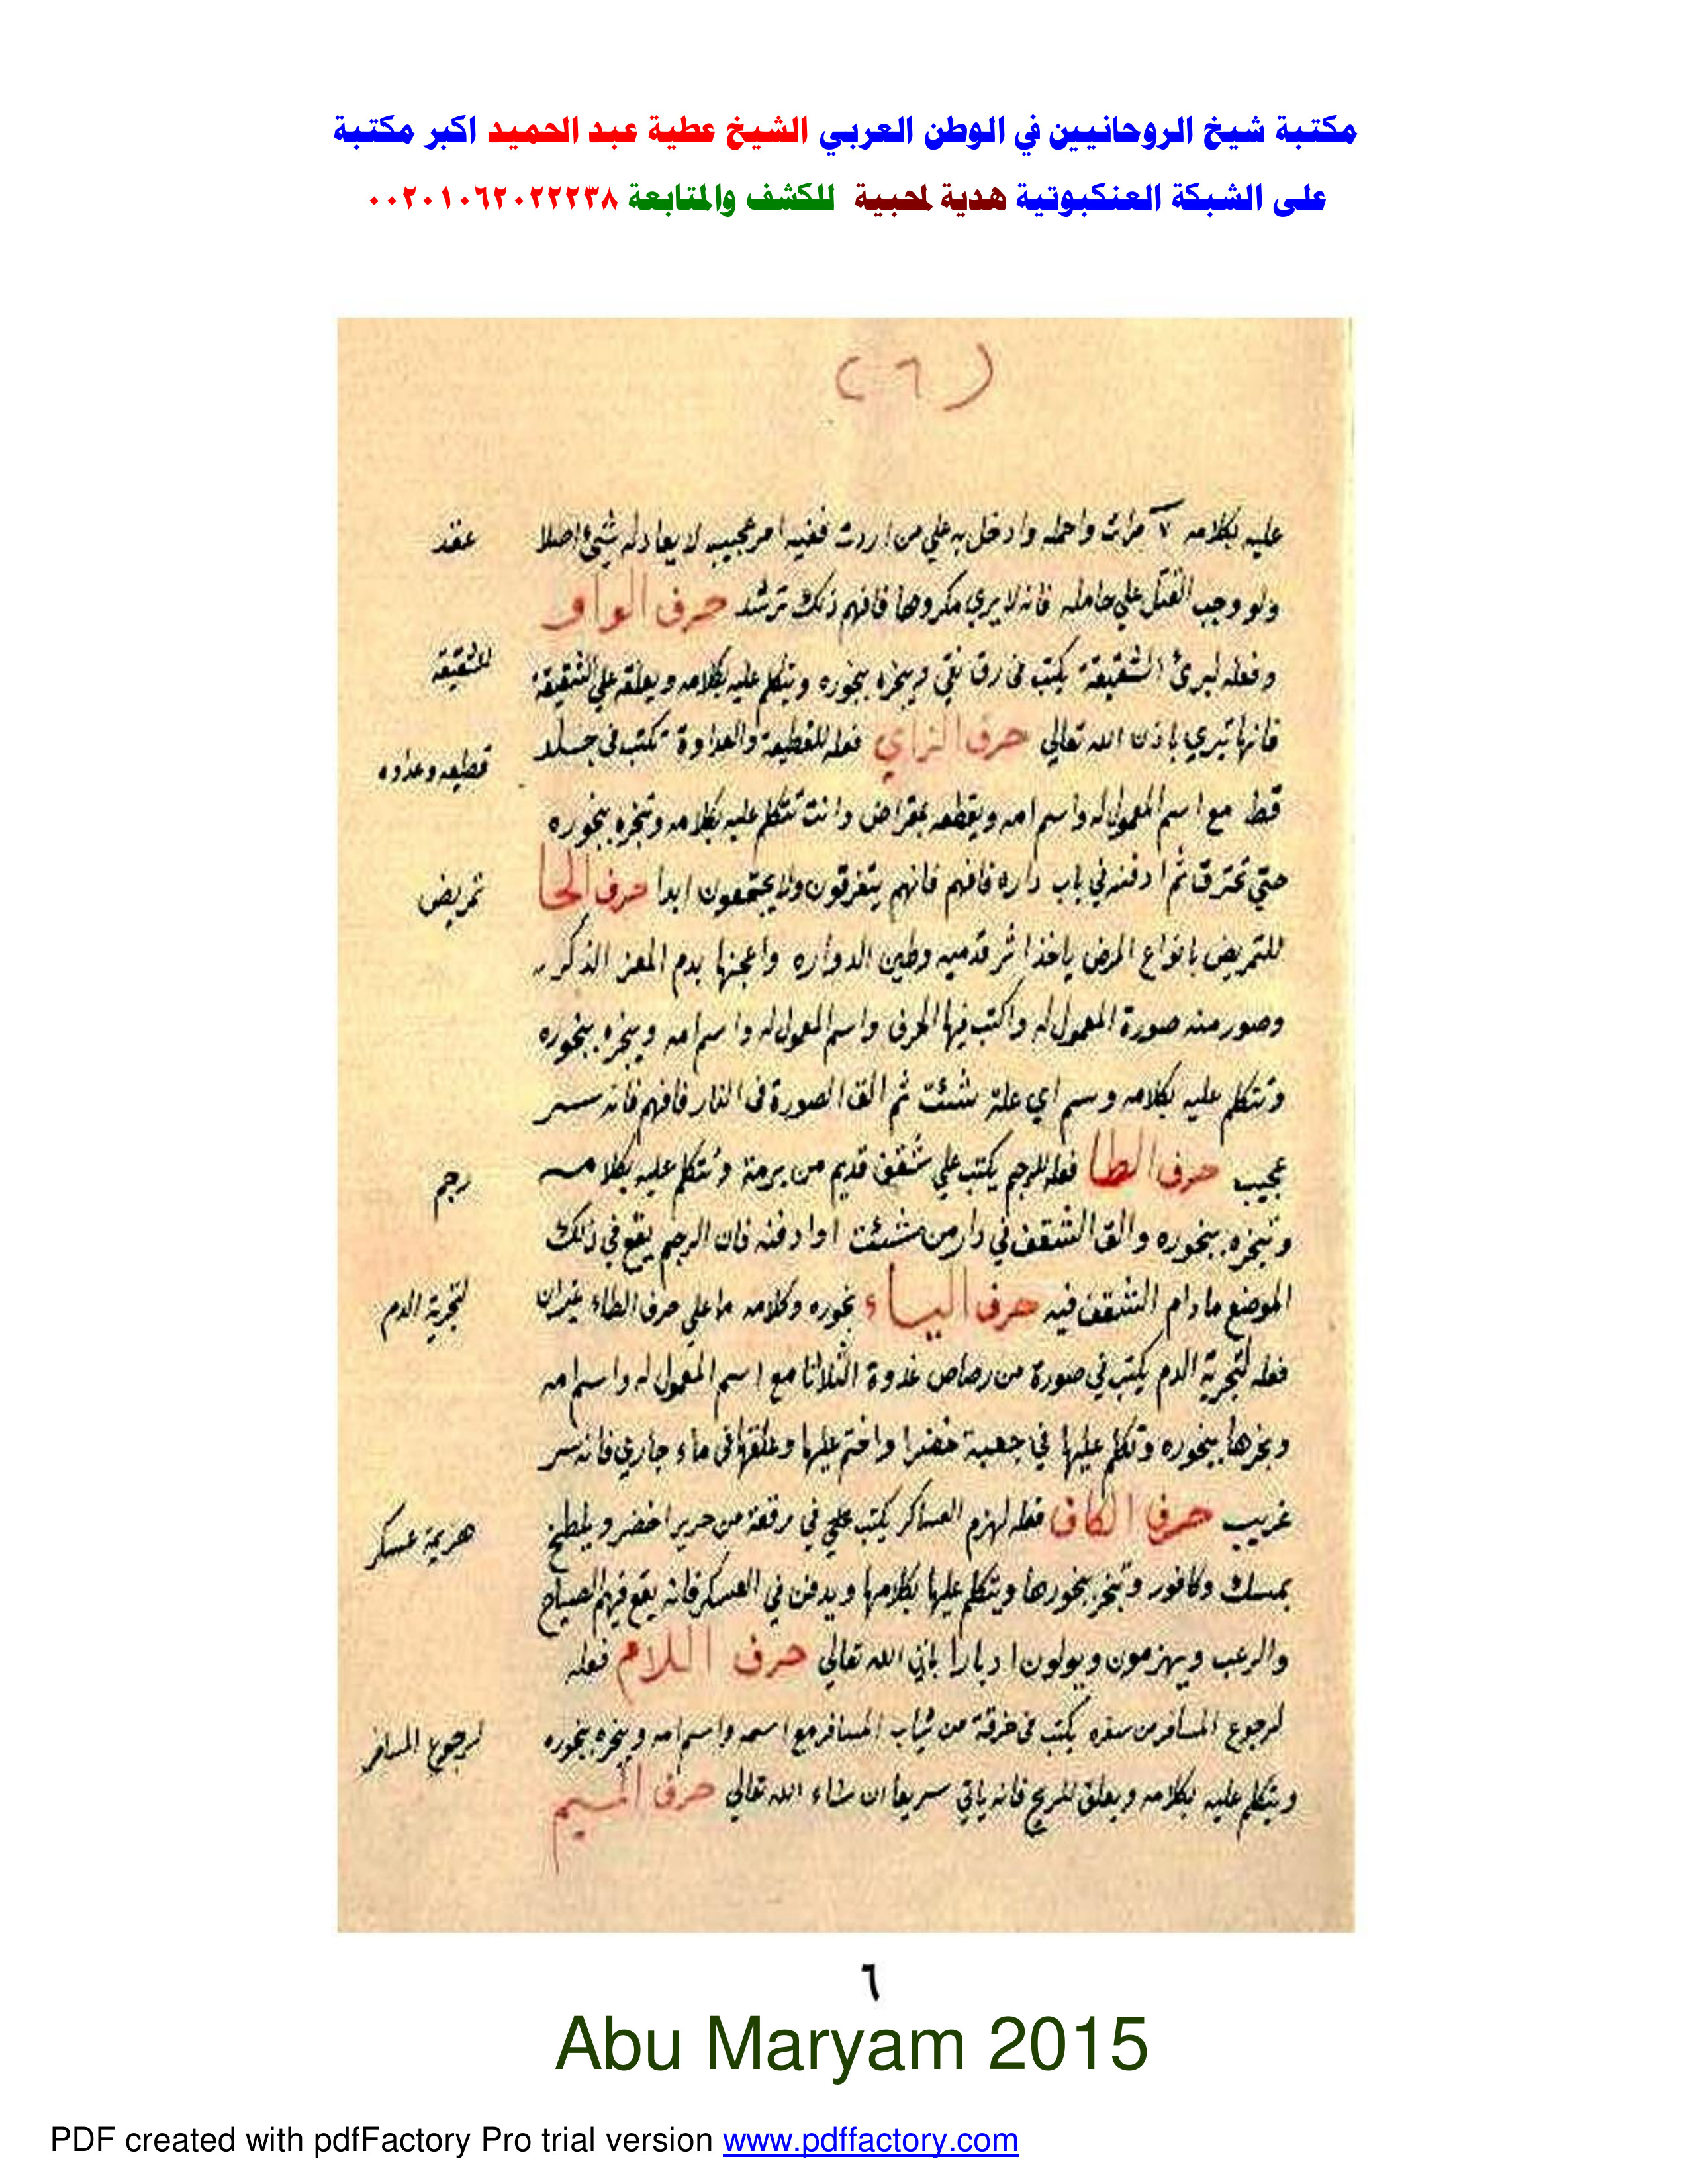 مكتبة شيخ الروحانيين في الوطن العربي الشيخ عطية عبد الحميد اكبر مكتبة
على الشبكة العنكبوتية هدية لمحبية للكشف والمتابعة ٠٠٢٠١٠٦٢٠٢٢٢٣٨
(٦)
عليه بكلامه ٧ مرات واحمله وادخل به علي من اردت ففيه امر عجيب لا يعادله شيئ اصلا
عقد
ولو وجب القتل علي حامله فانه لا يري مكروها فافهم ذلك ترشد حرف الواو
وفعله لبرئ الشقيقة يكتب في رق نقي ويبخره ببخوره ويتكلم عليه بكلامه ويعلقه علي الشقيقة
للشقيقة
فانها تبري باذن الله تعالي حرف الزاي فعله للقطيعة والعداوة تكتب في جلد
قطيعه وعداوه
قط مع اسم المعمول له واسم امه ويقطعه بمقراض وانت تتكلم عليه بكلامه وتبخره ببخوره
حتي تحترق ثم ادفنه في باب داره فافهم فانهم يتفرقون ولا يجتمعون ابدا حرف الحا
تمريض
للتمريض بانواع المرض ياخذ اثر قدميه وطين الدواره واعجنها بدم المعز الذكر
وصور منه صورة المعمول له واكتب فيها الحرف واسم المعمول له واسم امه ويبخره ببخوره
وتتكلم عليه بكلامه وسم اي علة شئت ثم الق الصورة في النار فافهم فانه سر
عجيب حرف الطا فعله للرجم يكتب علي شقف قديم من برمة وتتكلم عليه بكلامه
رجم
وتبخره ببخوره والق الشقف في دار من شئت او ادفنه فان الرجم يقع في ذلك
الموضع ما دام الشقف فيه حرف الياء بخوره وكلامه ما علي حرف الطاء غير ان
لتجرية الدم
فعله لتجرية الدم يكتب في صورة من رصاص غدوة الثلاثا مع اسم المعمول له واسم امه
وبخرها ببخوره وتكلم عليها في جعبة خضرا واختم عليها وعلقها في ماء جاري فانه سر
غريب حرف الكاف فعله لهزم العساكر يكتب علي في رقعة من حرير اخضر ويلطخ
هزيمة عسكر
بمسك وكافور وتبخر ببخورها ويتكلم عليها بكلامها ويدفن في العسكر فانه يقع فيهم الصياح
والرعب ويهزمون ويولون ادبارا باذن الله تعالي حرف اللام فعله
لرجوع المسافر من سفره يكتب في خرقة من ثياب المسافر مع اسمه واسم امه ويبخره ببخوره
لرجوع المسافر
ويتكلم عليه بكلامه ويعلق للريح فانه ياتي سريعا ان شاء الله تعالي حرف الميم
٦
Abu Maryam 2015
PDF created with pdfFactory Pro trial version www.pdffactory.com